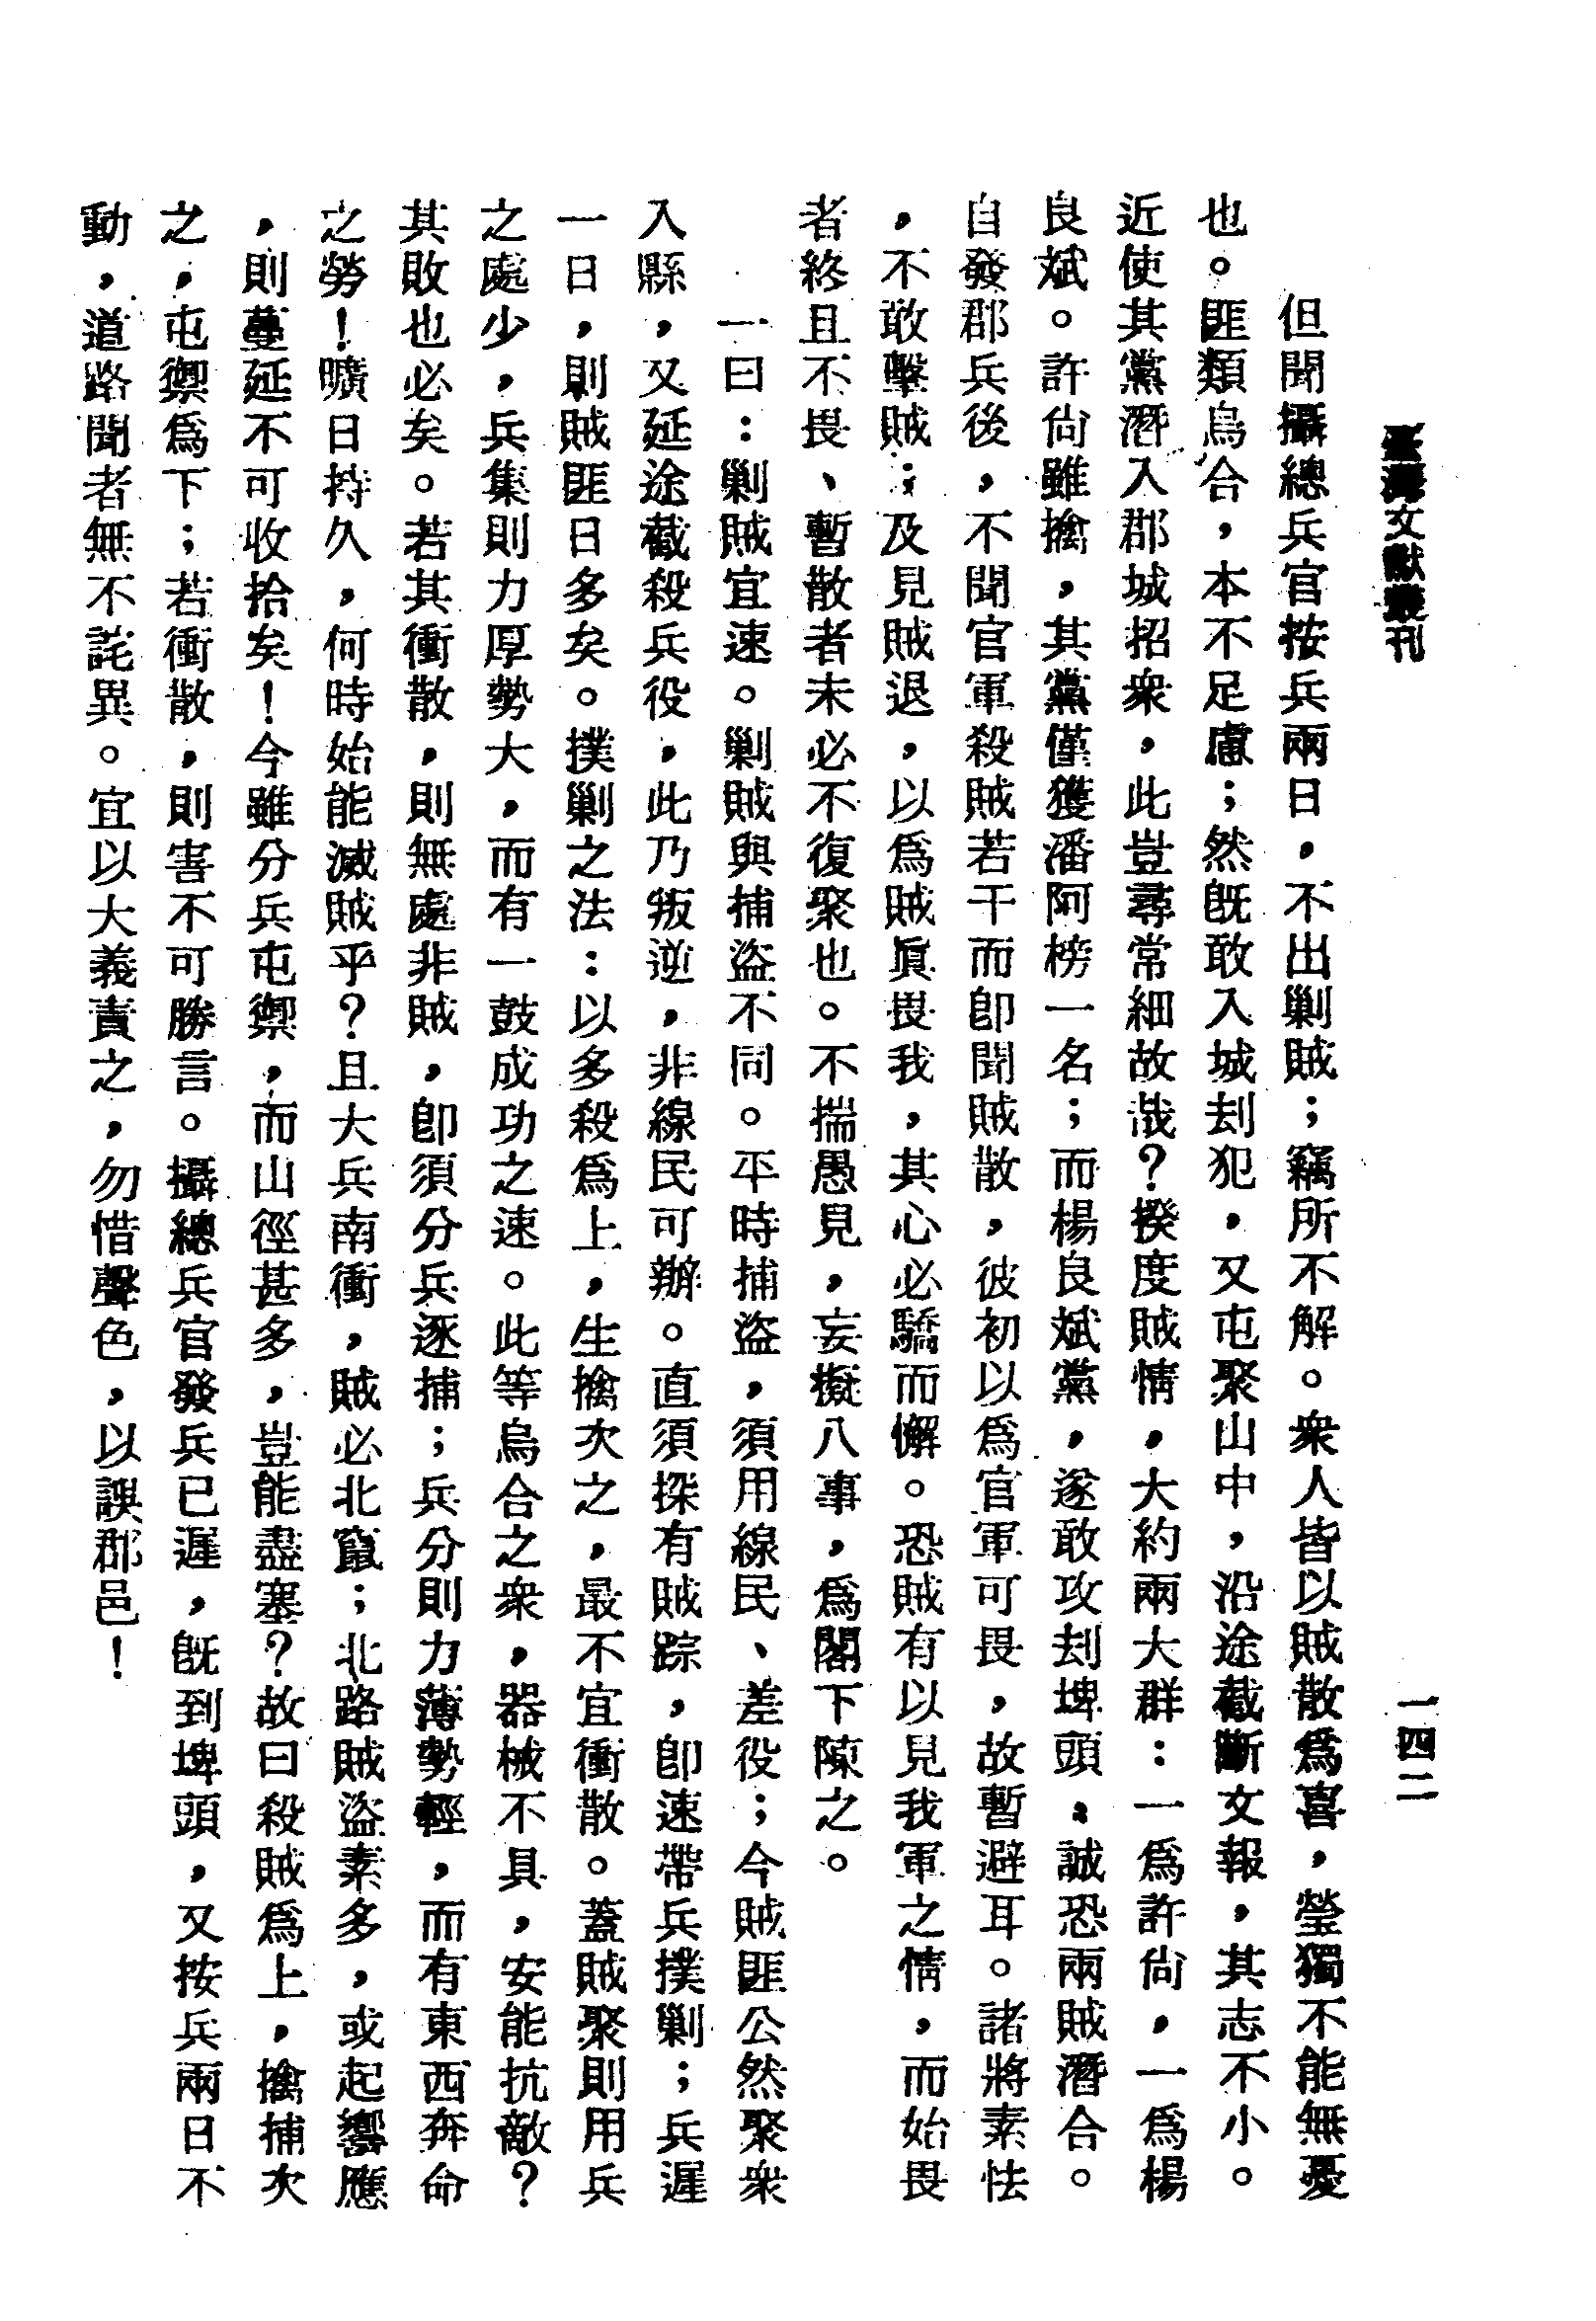 臺灣文獻叢刊
一四二
但聞攝總兵官按兵兩日，不出剿賊；竊所不解。衆人皆以賊散爲喜，瑩獨不能無憂
也。匪類烏合，本不足慮；然旣敢入城刦犯，又屯聚山中，沿途截斷文報，其志不小。
近使其黨潛入郡城招衆，此豈尋常細故哉？揆度賊情，大約兩大群：一爲許尙，一爲楊
良斌。許尙雖擒，其黨僅獲潘阿榜一名；而楊良斌黨，遂敢攻刦埤頭；誠恐兩賊潛合。
自發郡兵後，不聞官軍殺賊若干而卽聞賊散，彼初以爲官軍可畏，故暫避耳。諸將素怯
，不敢擊賊；及見賊退，以爲賊眞畏我，其心必驕而懈。恐賊有以見我軍之情，而始畏
者終且不畏、暫散者未必不復聚也。不揣愚見，妄擬八事，爲閣下陳之。
一曰：剿賊宜速。剿賊與捕盜不同。平時捕盜，須用線民、差役；今賊匪公然聚衆
入縣，又延途截殺兵役，此乃叛逆，非線民可辦。直須探有賊踪，卽速帶兵撲剿；兵遲
一日，則賊匪日多矣。撲剿之法：以多殺爲上，生擒次之，最不宜衝散。蓋賊聚則用兵
之處少，兵集則力厚勢大，而有一鼓成功之速。此等烏合之衆，器械不具，安能抗敵？
其敗也必矣。若其衝散，則無處非賊，卽須分兵逐捕；兵分則力薄勢輕，而有東西奔命
之勞！曠日持久，何時始能滅賊乎？且大兵南衝，賊必北竄；北路賊盜素多，或起響應
，則蔓延不可收拾矣！今雖分兵屯禦，而山徑甚多，豈能盡塞？故曰殺賊爲上，擒捕次
之，屯禦爲下；若衝散，則害不可勝言。攝總兵官發兵已遲，旣到埤頭，又按兵兩日不
動，道路聞者無不詫異。宜以大義責之，勿惜聲色，以誤郡邑！